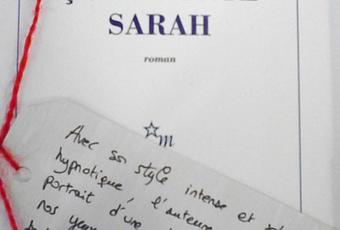 SARAH
roman
m
Avec son style intense et
hypnotique, l'auteure
portrait d'une
nos yeux